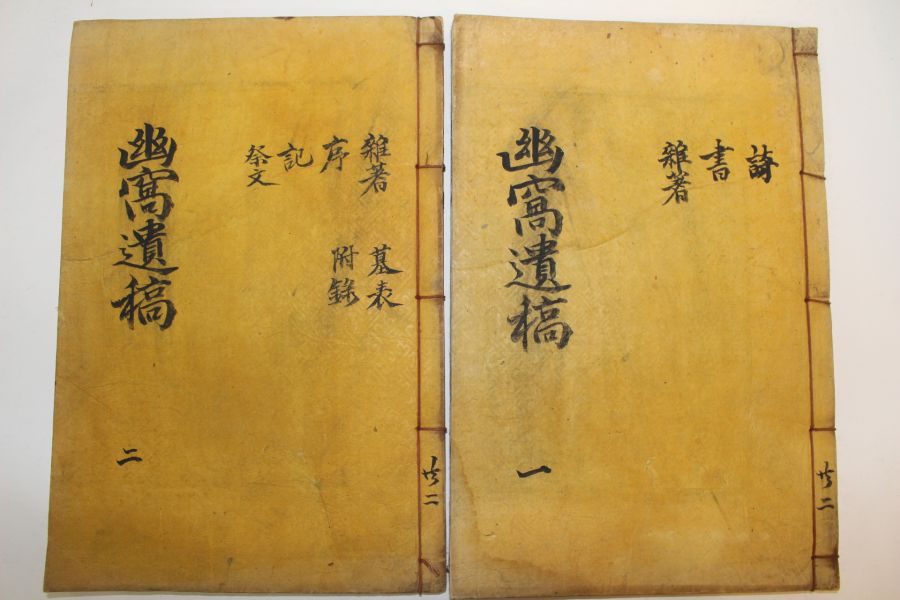 共二
詩
書
雜著
幽窩遺稿 一
共二
雜著 墓表
序 附錄
記
祭文
幽窩遺稿 二